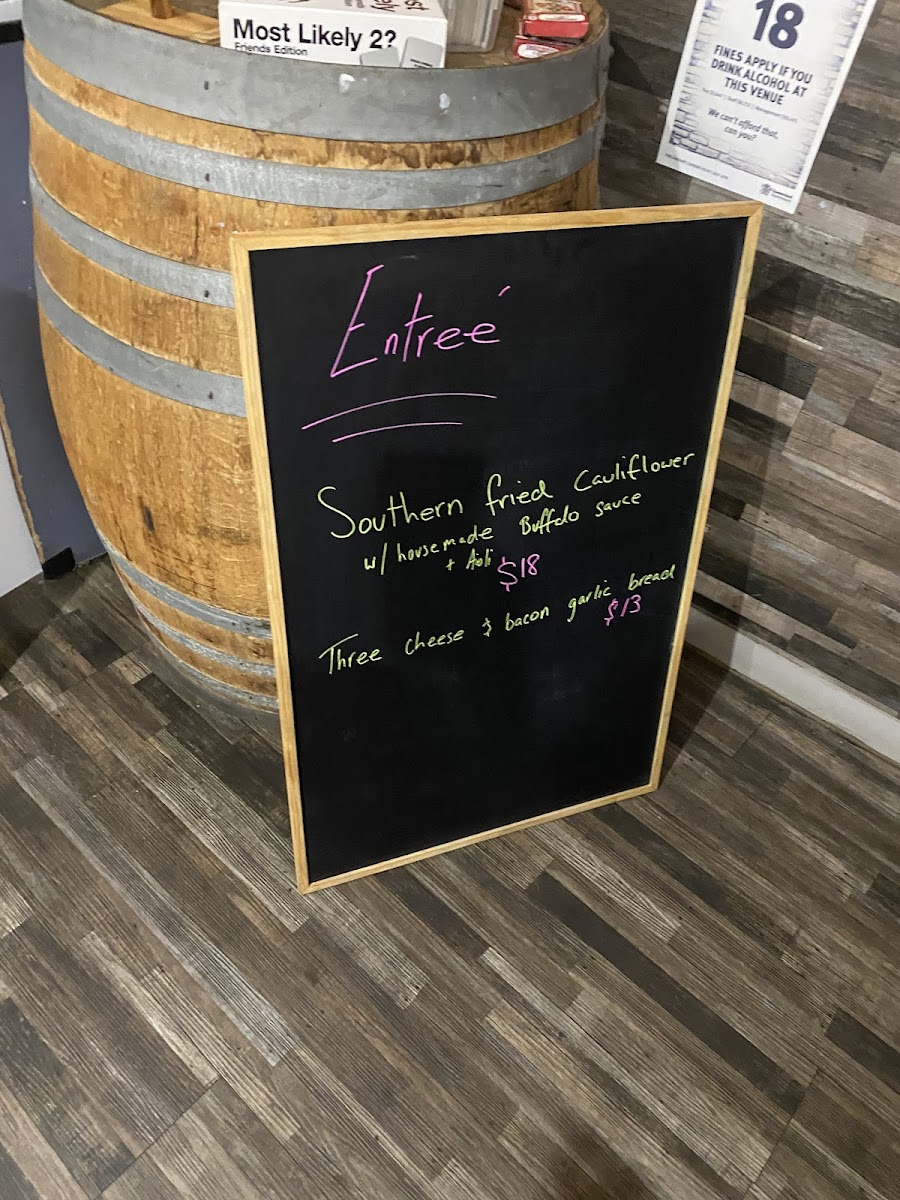 Most Likely 2?
Friends Edition
18
FINES APPLY IF YOU
DRINK ALCOHOL AT
THIS VENUE
We can't afford that,
can you?
Entreé
Southern fried Cauliflower
w/ housemade Buffalo sauce
+ Aioli $18
Three cheese & bacon garlic bread
$13